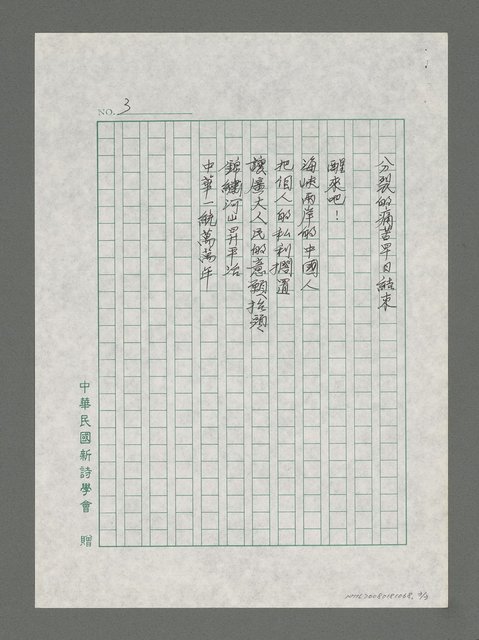 NO. 3
分裂的痛苦早日結束
醒來吧！
海峽兩岸的中國人
把個人的私利擱置
讓廣大人民的意願抬頭
錦繡河山昇平治
中華一統萬萬年
中華民國新詩學會 贈
NMTL20080181068. 3/3